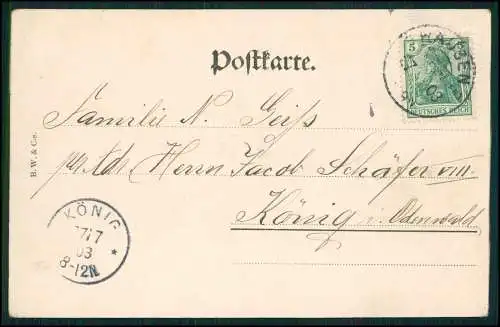 Postkarte.
5
DEUTSCHES REICH
HAUSEN
03
Familie N. Geiß
p. Adr. Herrn Jacob Schäfer VIII.
König i. Odenwald
B.W. & Co.
KÖNIG
17/7
03
8-12N.